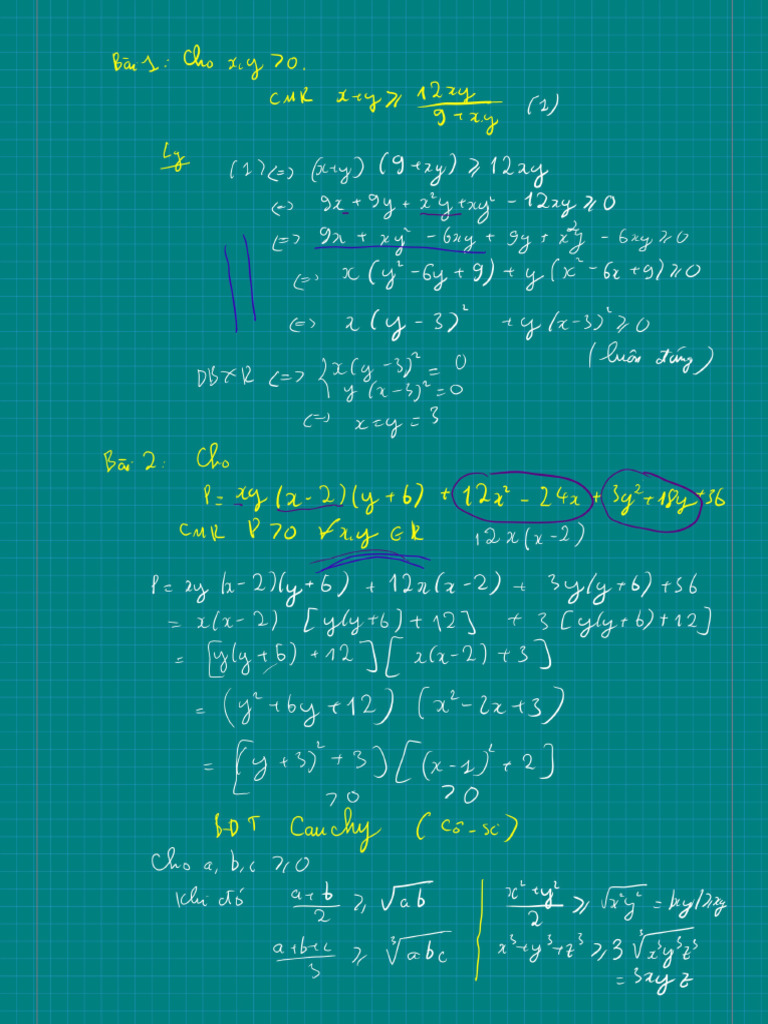 Bài 1: Cho x,y >0.
CMR x+y ≥ 12xy / (9+xy) (1)
(1) <=> (x+y) (9+xy) ≥ 12xy
<=> 9x + 9y + x²y + xy² - 12xy ≥ 0
<=> 9x + xy² - 6xy + 9y + x²y - 6xy ≥ 0
<=> x (y² - 6y + 9) + y (x² - 6x + 9) ≥ 0
<=> x (y - 3)² + y (x-3)² ≥ 0
(luôn đúng)
<=> { x(y-3)² = 0
y (x-3)² = 0
<=> x=y=3
Bài 2: Cho
P = xy (x-2)(y+6) + 12x² - 24x + 3y² + 18y + 36
CMR P >0 ∀x,y ∈ R 12x(x-2)
P = xy (x-2)(y+6) + 12x(x-2) + 3y(y+6) + 36
= x(x-2) [y(y+6) + 12] + 3 [y(y+6) + 12]
= [y(y+6) + 12] [x(x-2) + 3]
= (y² + 6y + 12) (x² - 2x + 3)
= [(y+3)² + 3) [(x-1)² + 2]
>0 >0
BĐT Cauchy (Cô-si)
Cho a, b, c ≥ 0
Khi đó (a+b)/2 ≥ √ab | (x²+y²)/2 ≥ √x²y² = |xy| ≥ xy
(a+b+c)/3 ≥ ³√abc | x³+y³+z³ ≥ 3 ³√x³y³z³
= 3xyz